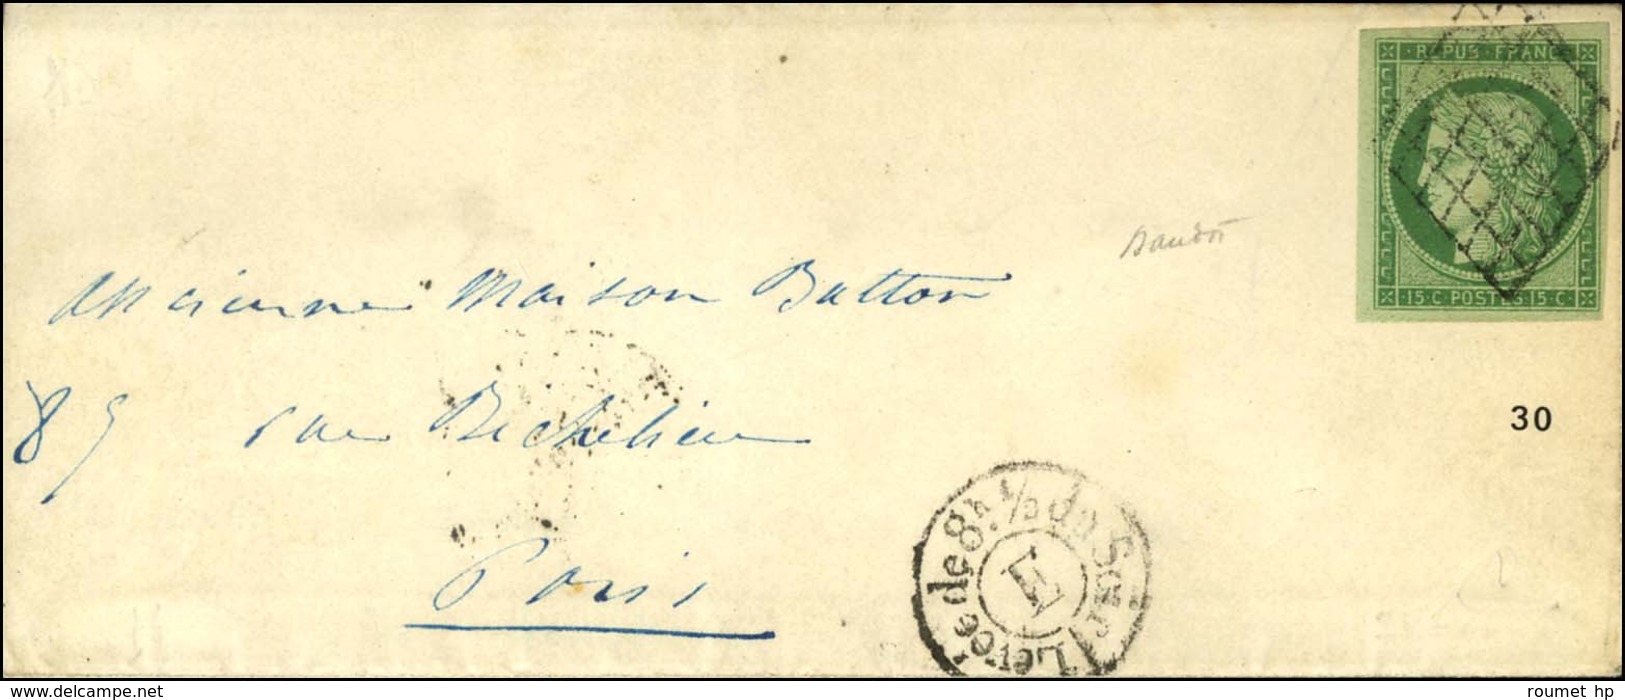 REPUB FRANC
15·C·POSTES·15·C·
Baudot
Ancienne Maison Batton
89 rue Richelieu
30
Paris
Levée de 8h. 1/2 du S
E
© www.delcampe.net
roumet hp